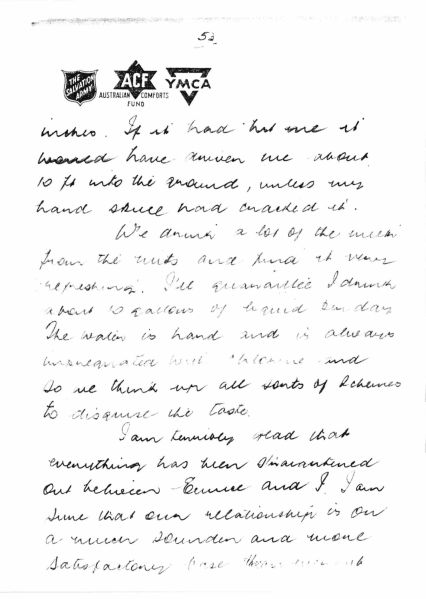 52
THE SALVATION ARMY
ACF
AUSTRALIAN COMFORTS FUND
YMCA
inches. If it had hit me it
would have driven me about
10 ft into the ground, unless my
hand had cracked it.
We drink a lot of the milk
from the nuts and find it very
refreshing. I'll guarantee I drink
about 10 gallons of liquid per day
The water is hard and is always
with chlorine and
so we think up all sorts of schemes
to disguise the taste.
I am terribly glad that
everything has been straightened
out between Eunice and I. I am
sure that our relationship is on
a much sounder and more
satisfactory base than